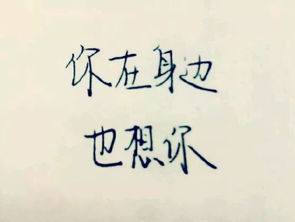 你在身边
也想你